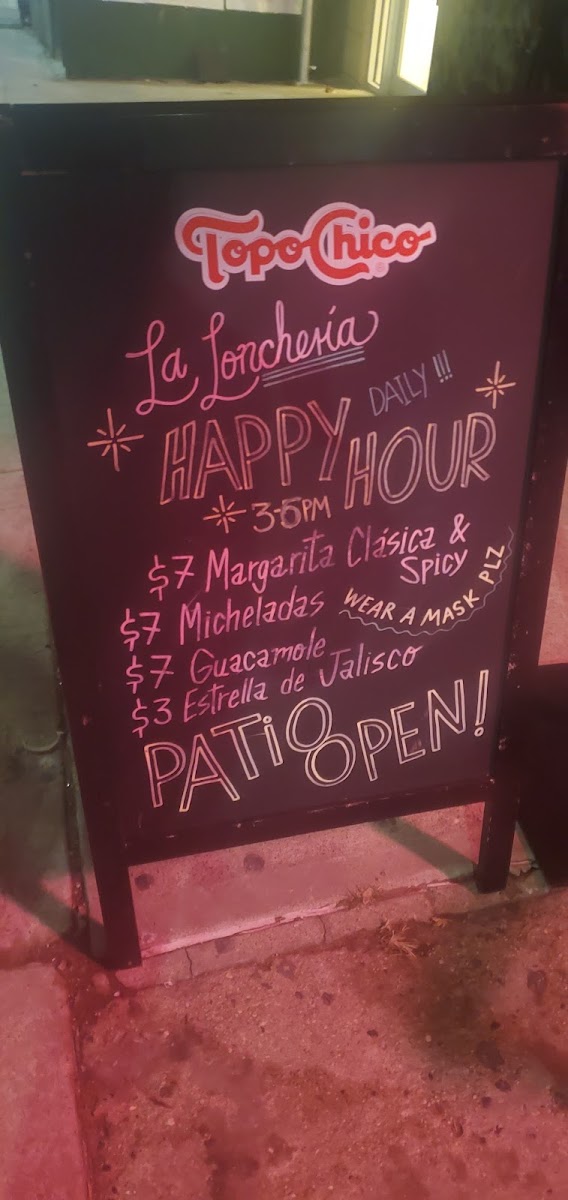 Topo Chico
La Lonchería
HAPPY HOUR DAILY !!!
3-6PM
$7 Margarita Clásica & Spicy
$7 Micheladas
WEAR A MASK PLZ
$7 Guacamole
$3 Estrella de Jalisco
PATiO OPEN!